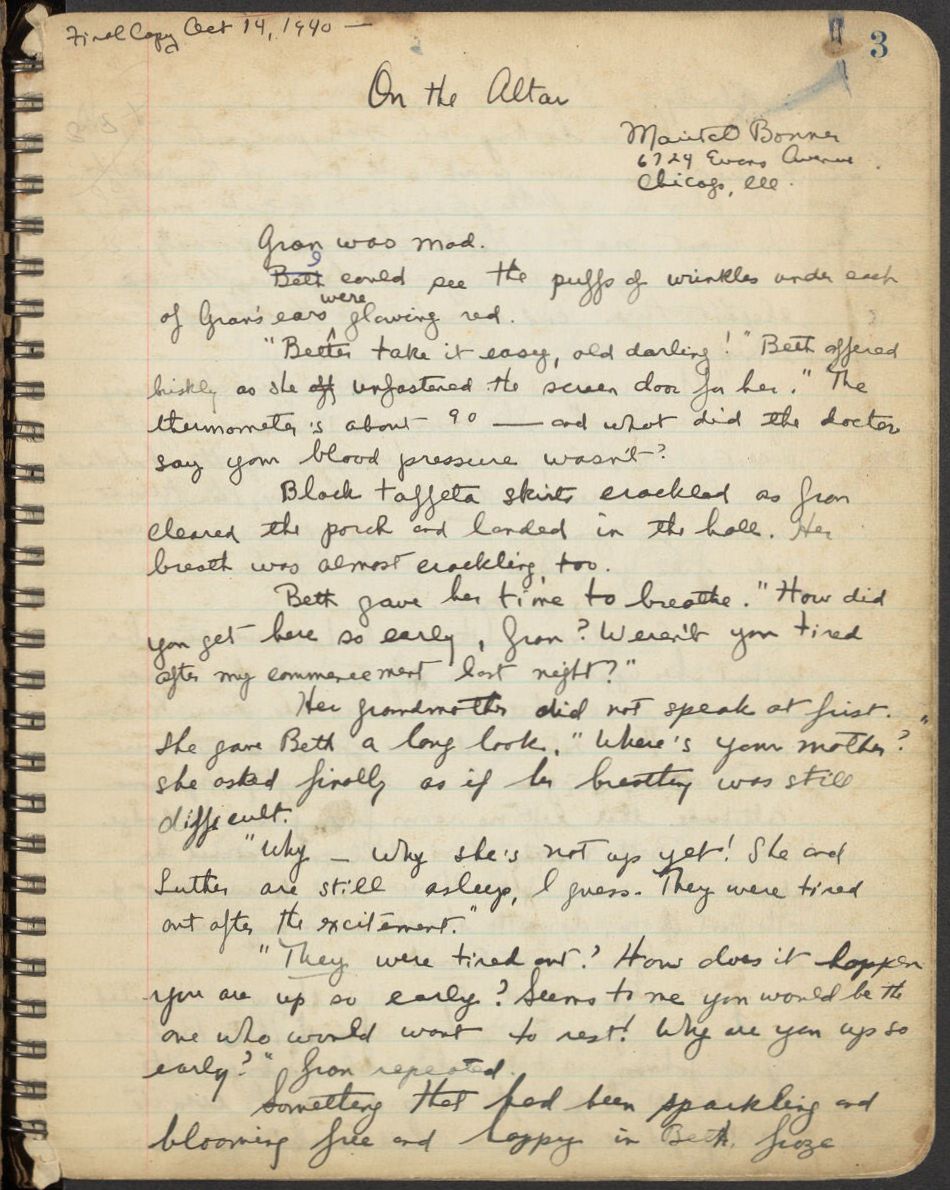 Final Copy Oct 14, 1940 —
3
On the Altar
Marita Bonner
6724 Evans Avenue
Chicago, Ill.
Gran was mad.
I
Beth could see the puffs of wrinkles under each
were
of Gran's ears glowing red.
"Better take it easy, old darling!" Beth offered
briskly as she off unfastened the screen door for her." The
thermometer's about 90 — and what did the doctor
say your blood pressure wasn't?
Black taffeta skirts crackled as Gran
cleared the porch and landed in the hall. Her
breath was almost crackling, too.
Beth gave her time to breathe. "How did
you get here so early, Gran? Weren't you tired
after my commencement last night?"
Her grandmother did not speak at first.
She gave Beth a long look. "Where's your mother?"
she asked finally as if her breathing was still
difficult.
"Why — Why she's not up yet! She and
Luther are still asleep, I guess. They were tired
out after the excitement."
"They were tired out? How does it happen
you are up so early? Seems to me you would be the
one who would want to rest! Why are you up so
early?" Gran repeated.
Something that had been sparkling and
blooming free and happy in Beth froze